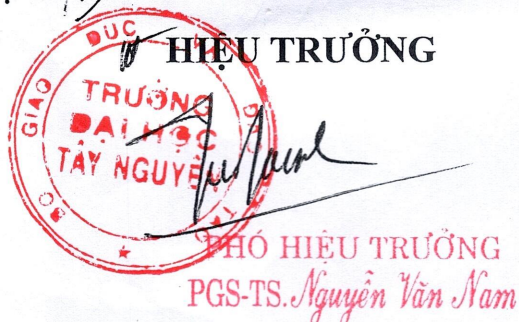 HIỆU TRƯỞNG
BỘ GIÁO DỤC
TRƯỜNG
ĐẠI HỌC
TÂY NGUYÊN
PHÓ HIỆU TRƯỞNG
PGS-TS. Nguyễn Văn Nam